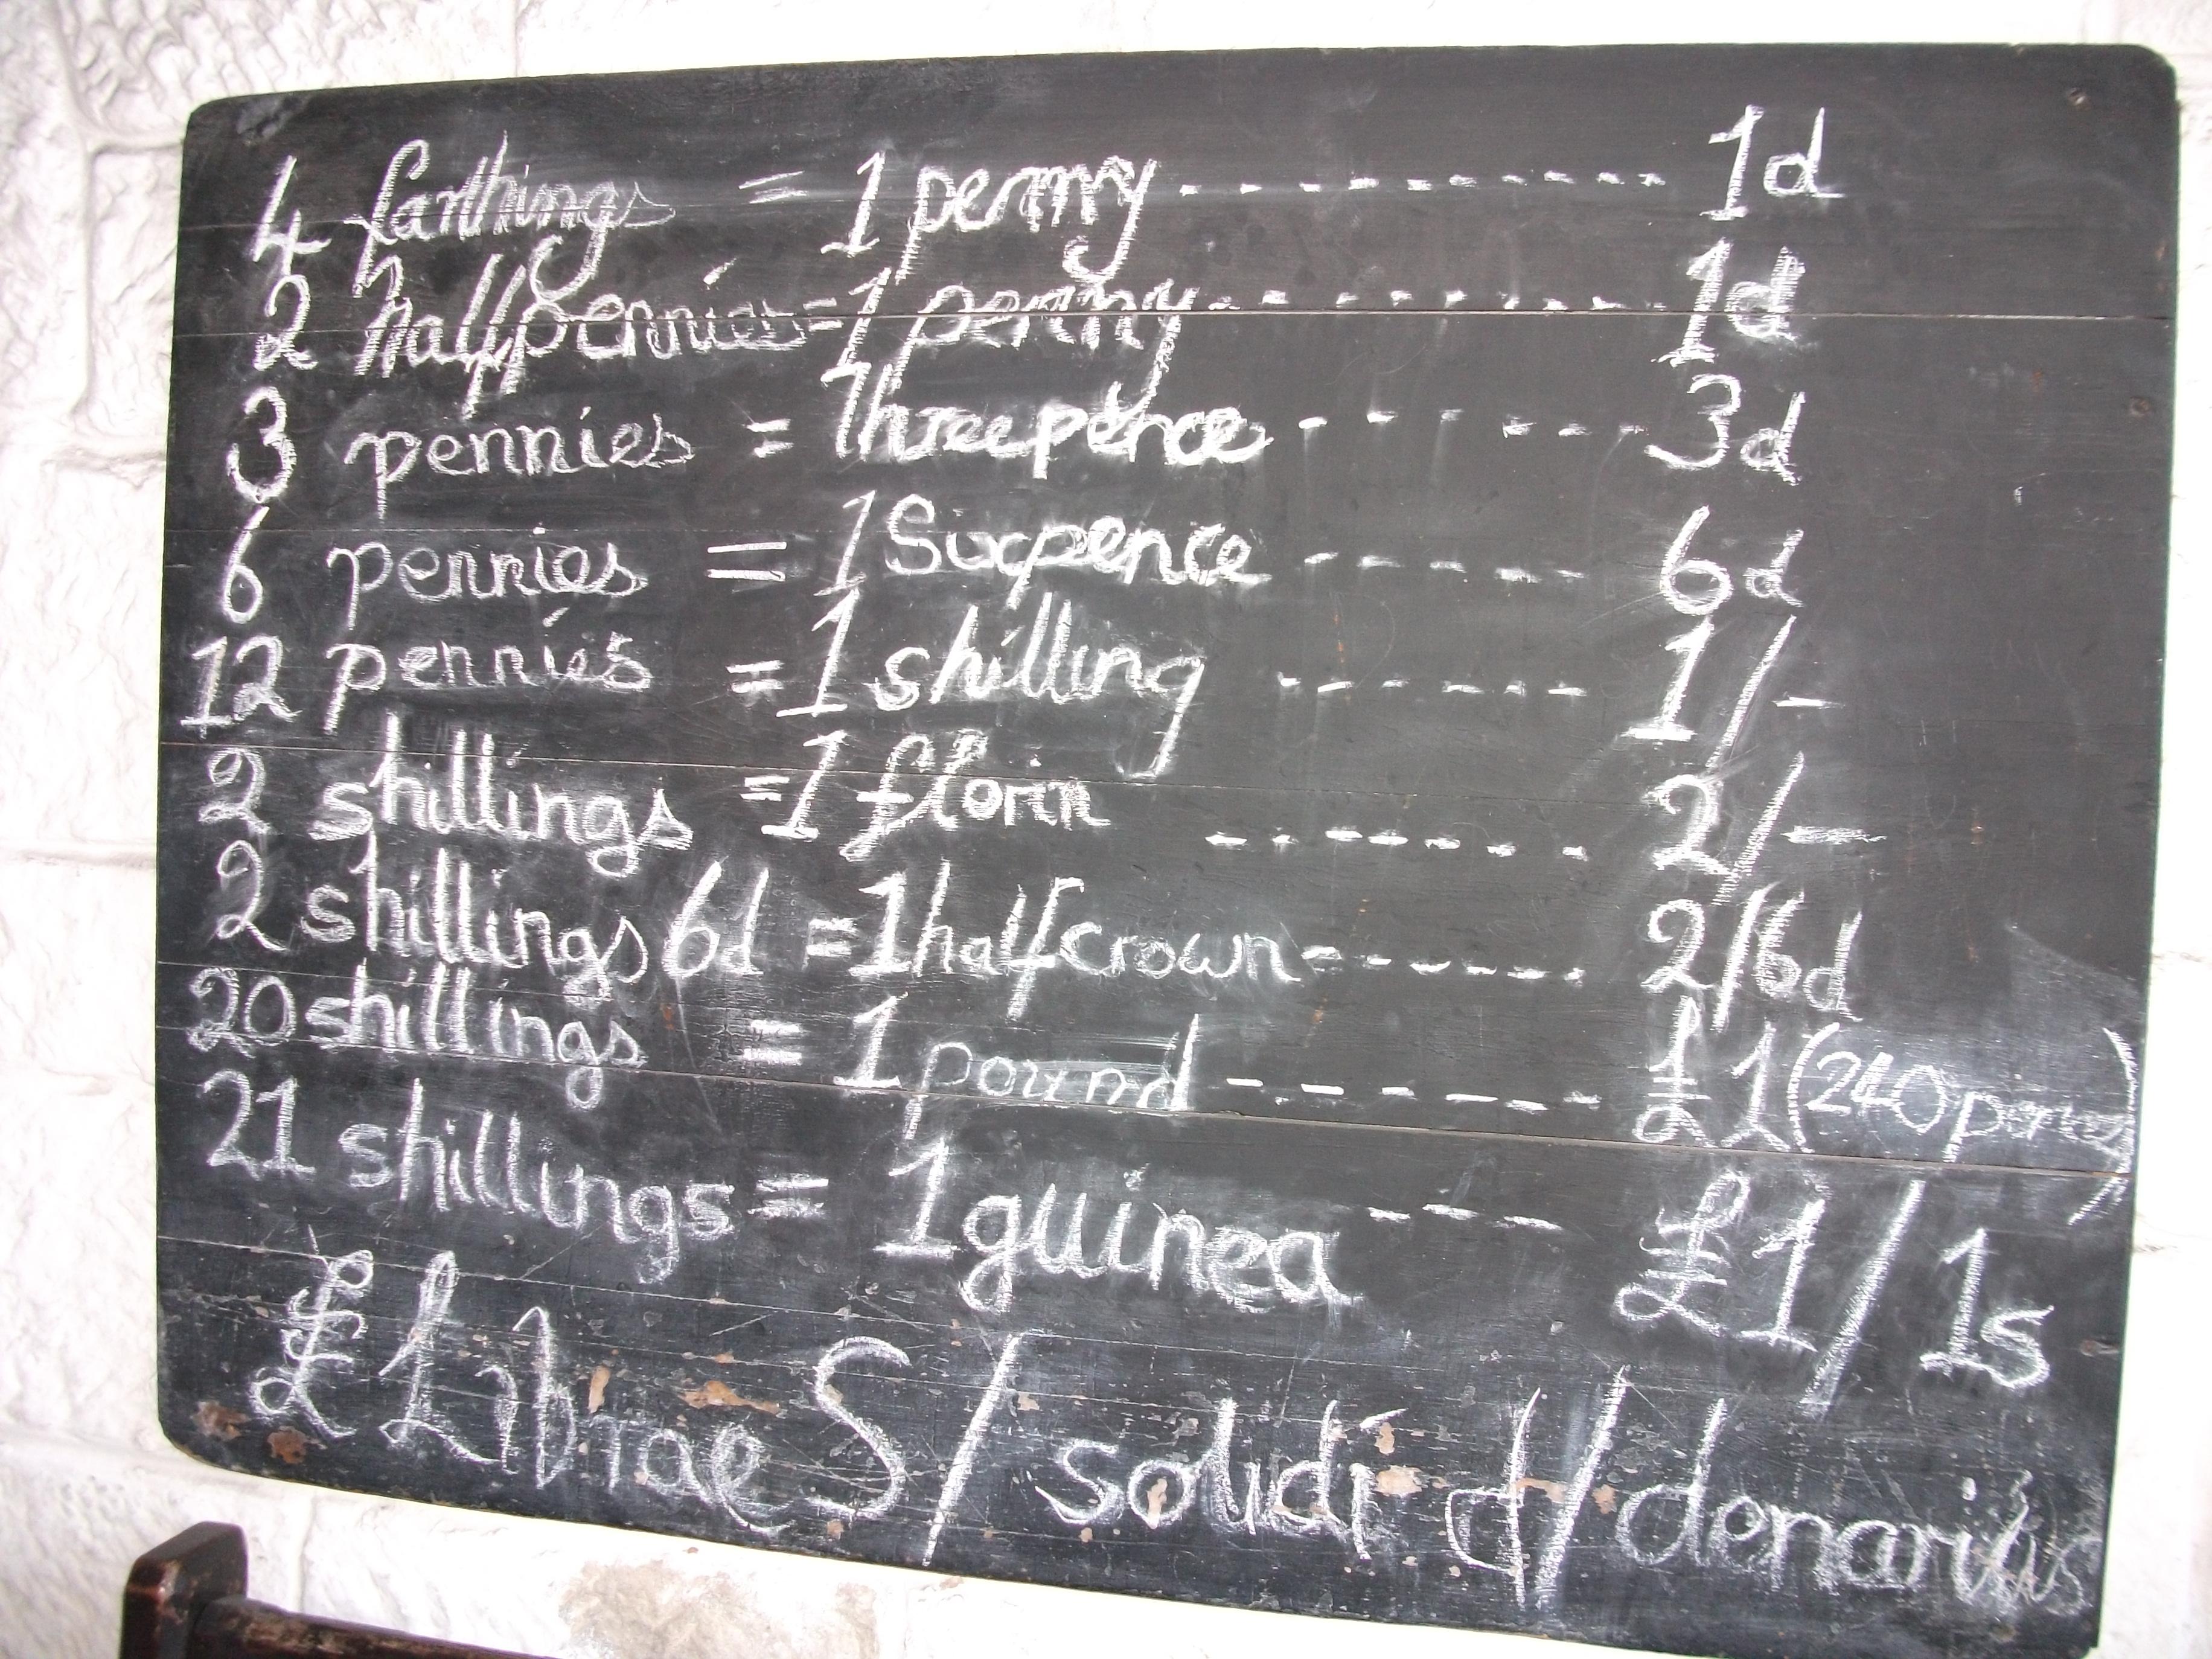 4 farthings = 1 penny - - - - - - - - - - - - 1d
2 halfpennies = 1 penny - - - - - - - - - 1d
3 pennies = Threepence - - - - - - 3d
6 pennies = 1 Sixpence - - - - - - 6d
12 pennies = 1 shilling - - - - - - 1/-
2 shillings = 1 florin - - - - - - - 2/-
2 shillings 6d = 1 half crown - - - - - - 2/6d
20 shillings = 1 pound - - - - - - £1 (240 pence)
21 shillings = 1 guinea - - - £1/1s
£ Librae S/ solidi d/ denarius